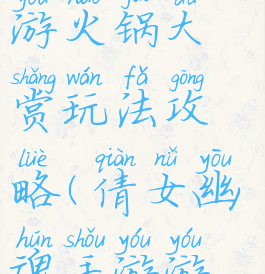 游火锅大
shǎng wán fǎ gōng
赏玩法攻
lüè qiàn nǚ yōu
略(倩女幽
hún shǒu yóu yóu
魂手游游